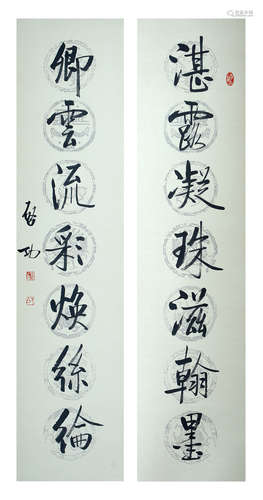 湛露凝珠滋翰墨
卿雲流彩煥絲綸
啟功